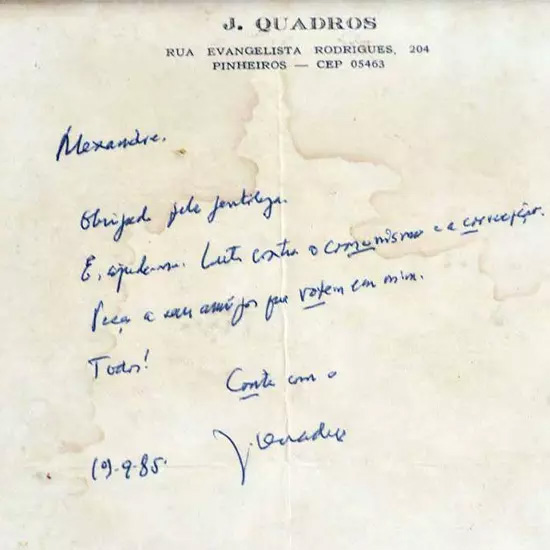 J. QUADROS
RUA EVANGELISTA RODRIGUES, 204
PINHEIROS — CEP 05463
Alexandre.
Obrigado pela gentileza.
E, ajudem. Luto contra o comunismo e a corrupção.
Peça a seus amigos que votem em mim.
Todos!
Conte com o
J. Quadros
19-9-85.